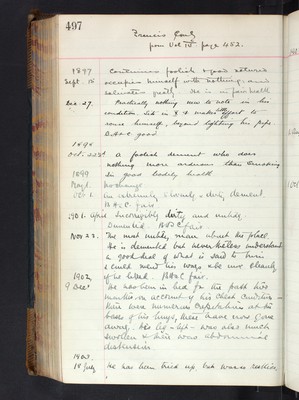 497
Francis Conly
from Vol IV page 452.
1897
Sept 15 Continues foolish & good natured
occupies himself with nothing, and
salivates greatly. He is in fair health
Dec. 27. Practically nothing new to note in his
condition. Sits in & makes effort to
rouse himself, beyond lighting his pipe
B.H. & C. good
1898
Oct. 22d A foolish dement who does
nothing more arduous than smoking
In good bodily health
1899
May 1. No change.
Oct 1. An extremely slovenly & dirty dement
B.H.C. fair.
1901. April Incorrigibly dirty and untidy.
Demented. B.H.&C. fair.
Nov 22. The most untidy man about the place.
He is demented but nevertheless understands
a good deal of what is said to him
& could mend his ways & be more cleanly
if he liked. B.H.&C. fair.
1902
9 Decr He has been in bed for the past two
months on account of his chest condition -
there were numerous crepitations at the
bases of his lungs, these have now gone
away. His leg - left - was also much
swollen & there was abdominal
distension.
1903.
14 July He has been tried up, but was so restless